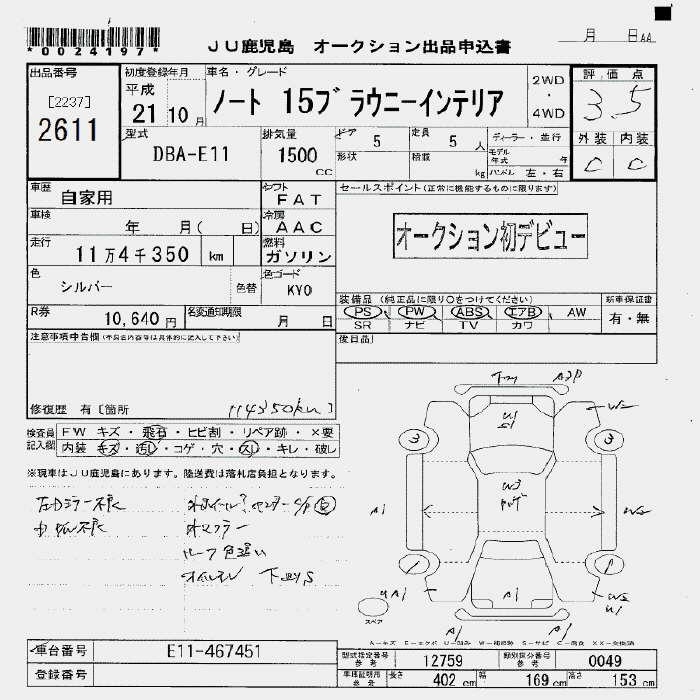 *0024197*
JU鹿児島 オークション出品申込書
月 日AA
出品番号
[2237]
2611
初度登録年月
平成
21 10 月
車名・グレード
ノート 15ブラウニーインテリア
2WD
・
4WD
評価点
3.5
外装 内装
C C
型式
DBA-E11
排気量
1500
CC
ドア
5
形状
定員
5 人
積載
kg
ディーラー・並行
モデル年式 年
ハンドル 左・右
車歴
自家用
シフト
FAT
セールスポイント(正常に機能するものに限ります)
オークション初デビュー
車検
年 月( 日)
冷房
AAC
走行
11万4千350 km
燃料
ガソリン
色
シルバー
色替
色コード
KY0
R券
10,640 円
名変通知期限
月 日
装備品 (純正品に限り○をつけてください)
PS PW ABS エアB AW
SR ナビ TV カワ
新車保証書
有・無
注意事項申告欄
後日品
修復歴 有〔箇所
114350km 〕
検査員記入欄
FW キズ・飛石・ヒビ割・リペア跡・×要
内装 キズ・汚れ・コゲ・穴・スレ・キレ・破レ
※現車はJU鹿児島にあります。陸送費は落札店負担となります。
左ドミラー不良
オマフラー
ルーフ色違い
3 3
1 1
W3
A1
A1
A1
A1
スペア
車台番号
E11-467451
登録番号
型式指定番号
参考
12759
類別区分番号
参考
0049
車庫証明用
参考
長さ 402 cm
幅 169 cm
高さ 153 cm